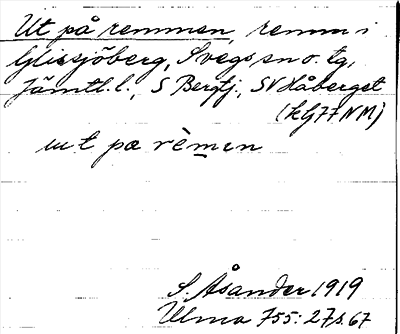 Ut på remmen, remm i
Glissjöberg, Svegs sn o. tg,
Jämtl. l., S Bergtj., SV Håberget
(kG77NM)
ut pa rèmen
S. Åsander 1919
Ulma 755:27 s. 67